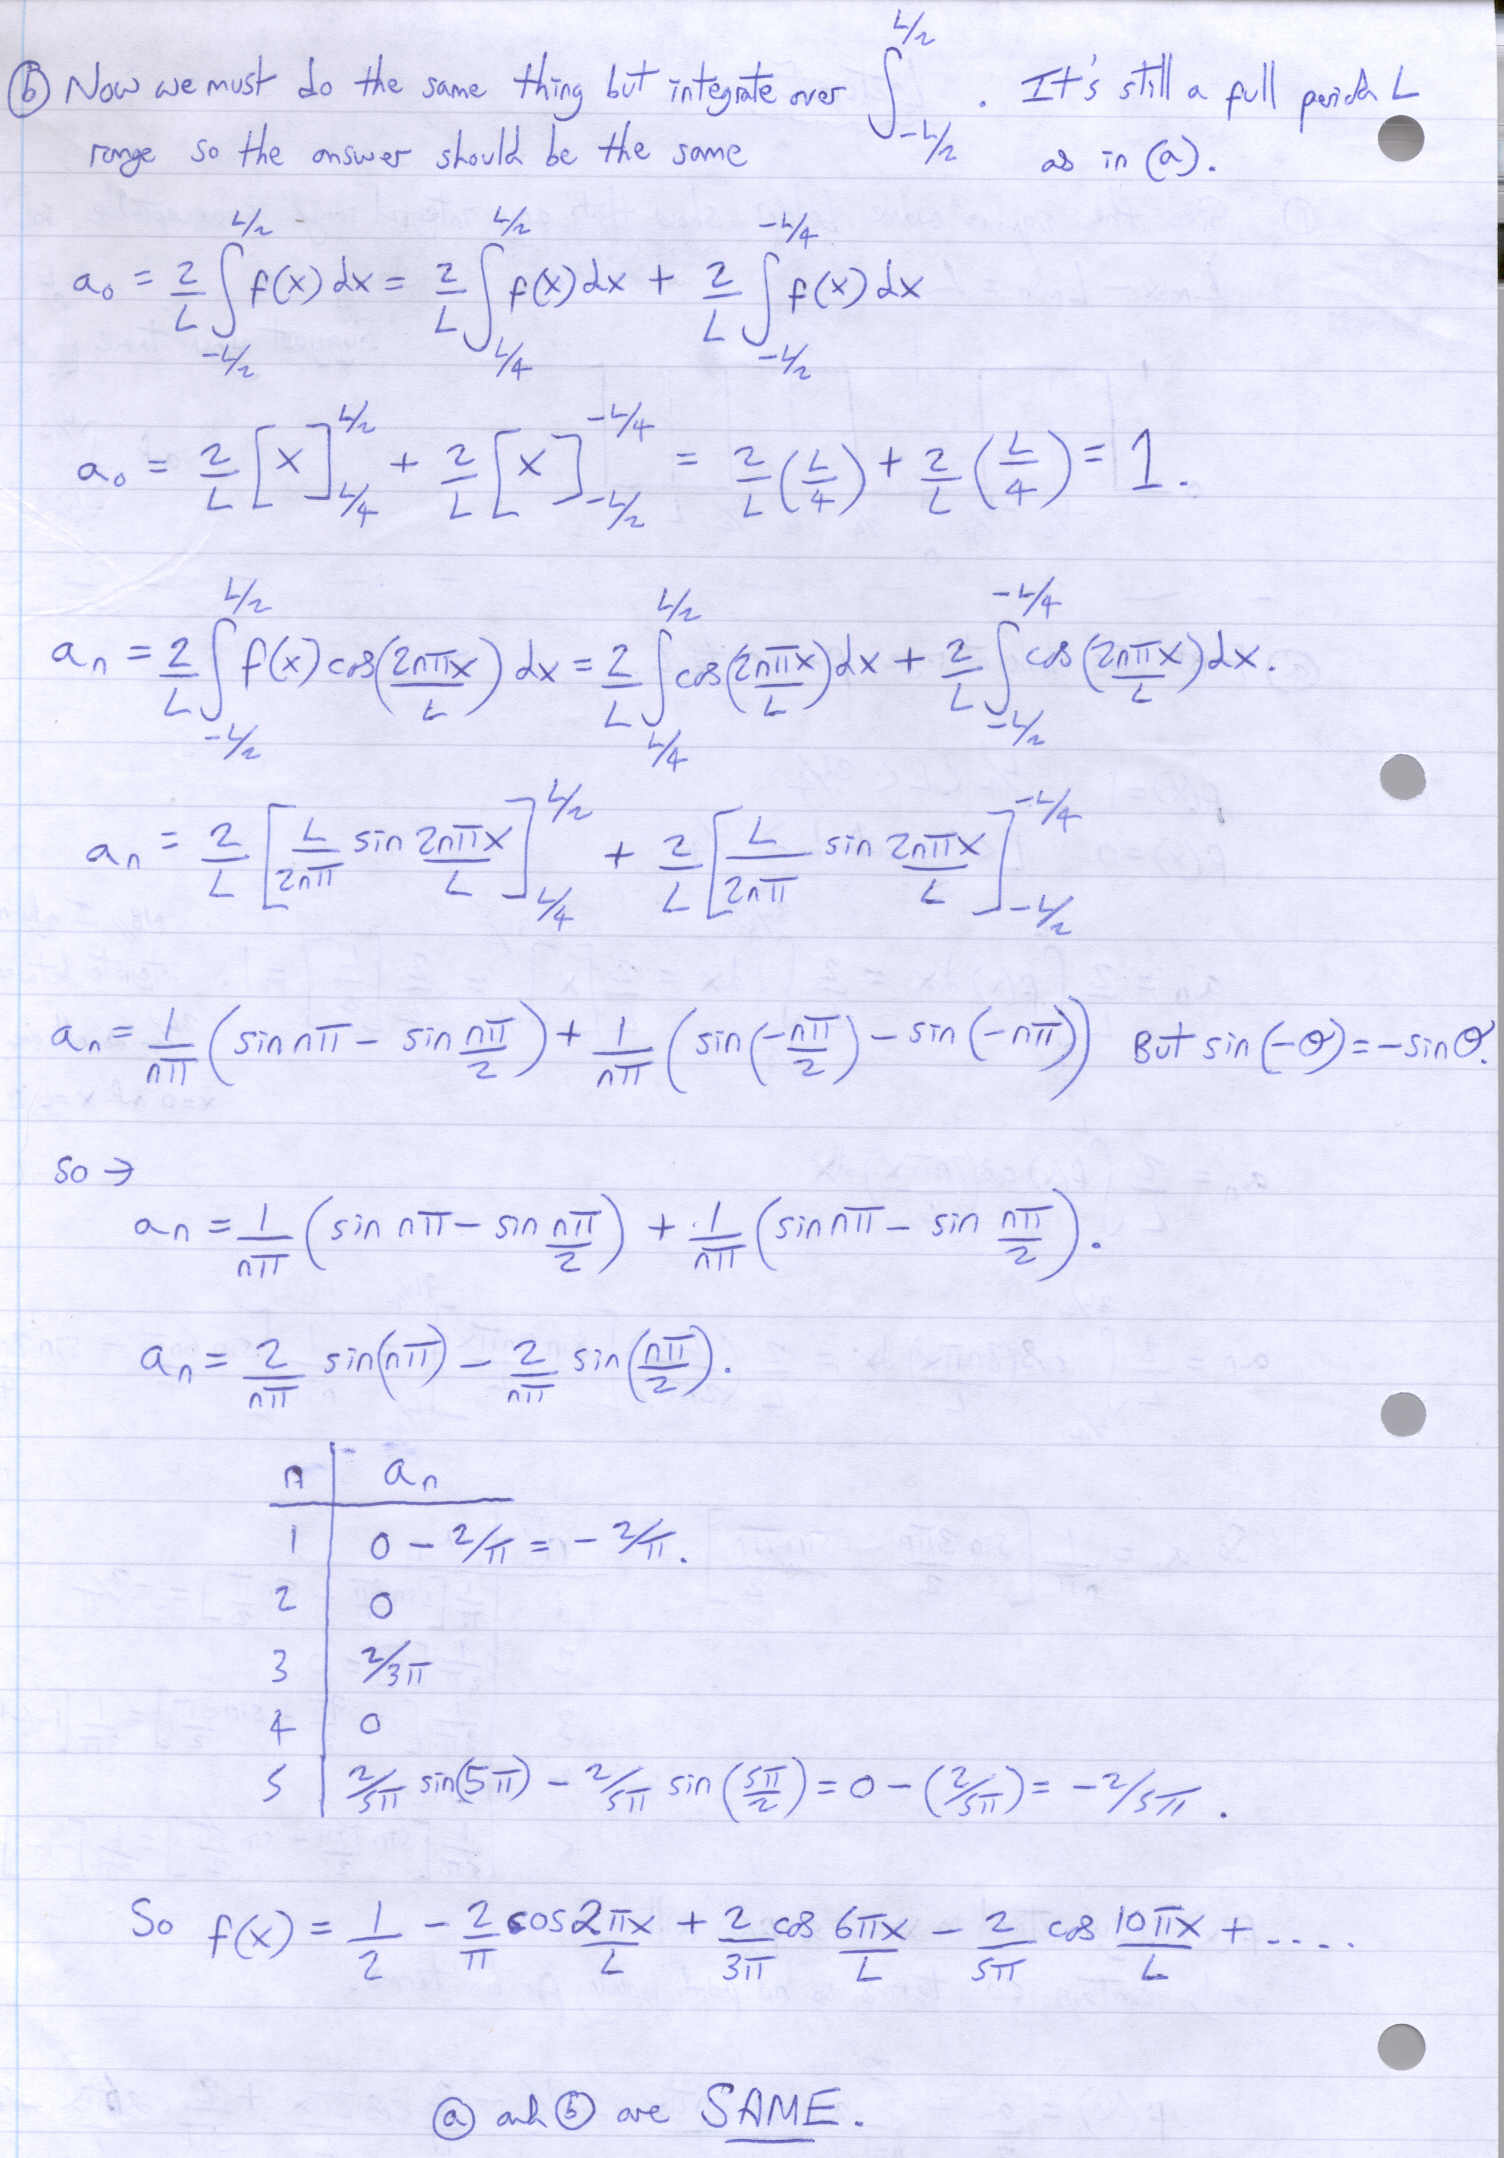 (b) Now we must do the same thing but integrate over ∫_{-L/2}^{L/2} . It's still a full period L
range so the answer should be the same as in (a).
a₀ = 2/L ∫_{-L/2}^{L/2} f(x) dx = 2/L ∫_{L/4}^{L/2} f(x) dx + 2/L ∫_{-L/2}^{-L/4} f(x) dx
a₀ = 2/L [x]_{L/4}^{L/2} + 2/L [x]_{-L/2}^{-L/4} = 2/L (L/4) + 2/L (L/4) = 1.
aₙ = 2/L ∫_{-L/2}^{L/2} f(x) cos(2nπx/L) dx = 2/L ∫_{L/4}^{L/2} cos(2nπx/L) dx + 2/L ∫_{-L/2}^{-L/4} cos(2nπx/L) dx.
aₙ = 2/L [L/2nπ sin 2nπx/L]_{L/4}^{L/2} + 2/L [L/2nπ sin 2nπx/L]_{-L/2}^{-L/4}
aₙ = 1/nπ (sin nπ - sin nπ/2) + 1/nπ (sin(-nπ/2) - sin(-nπ)) But sin(-θ) = -sinθ.
so →
aₙ = 1/nπ (sin nπ - sin nπ/2) + 1/nπ (sin nπ - sin nπ/2).
aₙ = 2/nπ sin(nπ) - 2/nπ sin(nπ/2).
n aₙ
1 0 - 2/π = -2/π.
2 0
3 2/3π
4 0
5 2/5π sin(5π) - 2/5π sin(5π/2) = 0 - (2/5π) = -2/5π.
So f(x) = 1/2 - 2/π cos 2πx/L + 2/3π cos 6πx/L - 2/5π cos 10πx/L + .....
(a) and (b) are SAME.